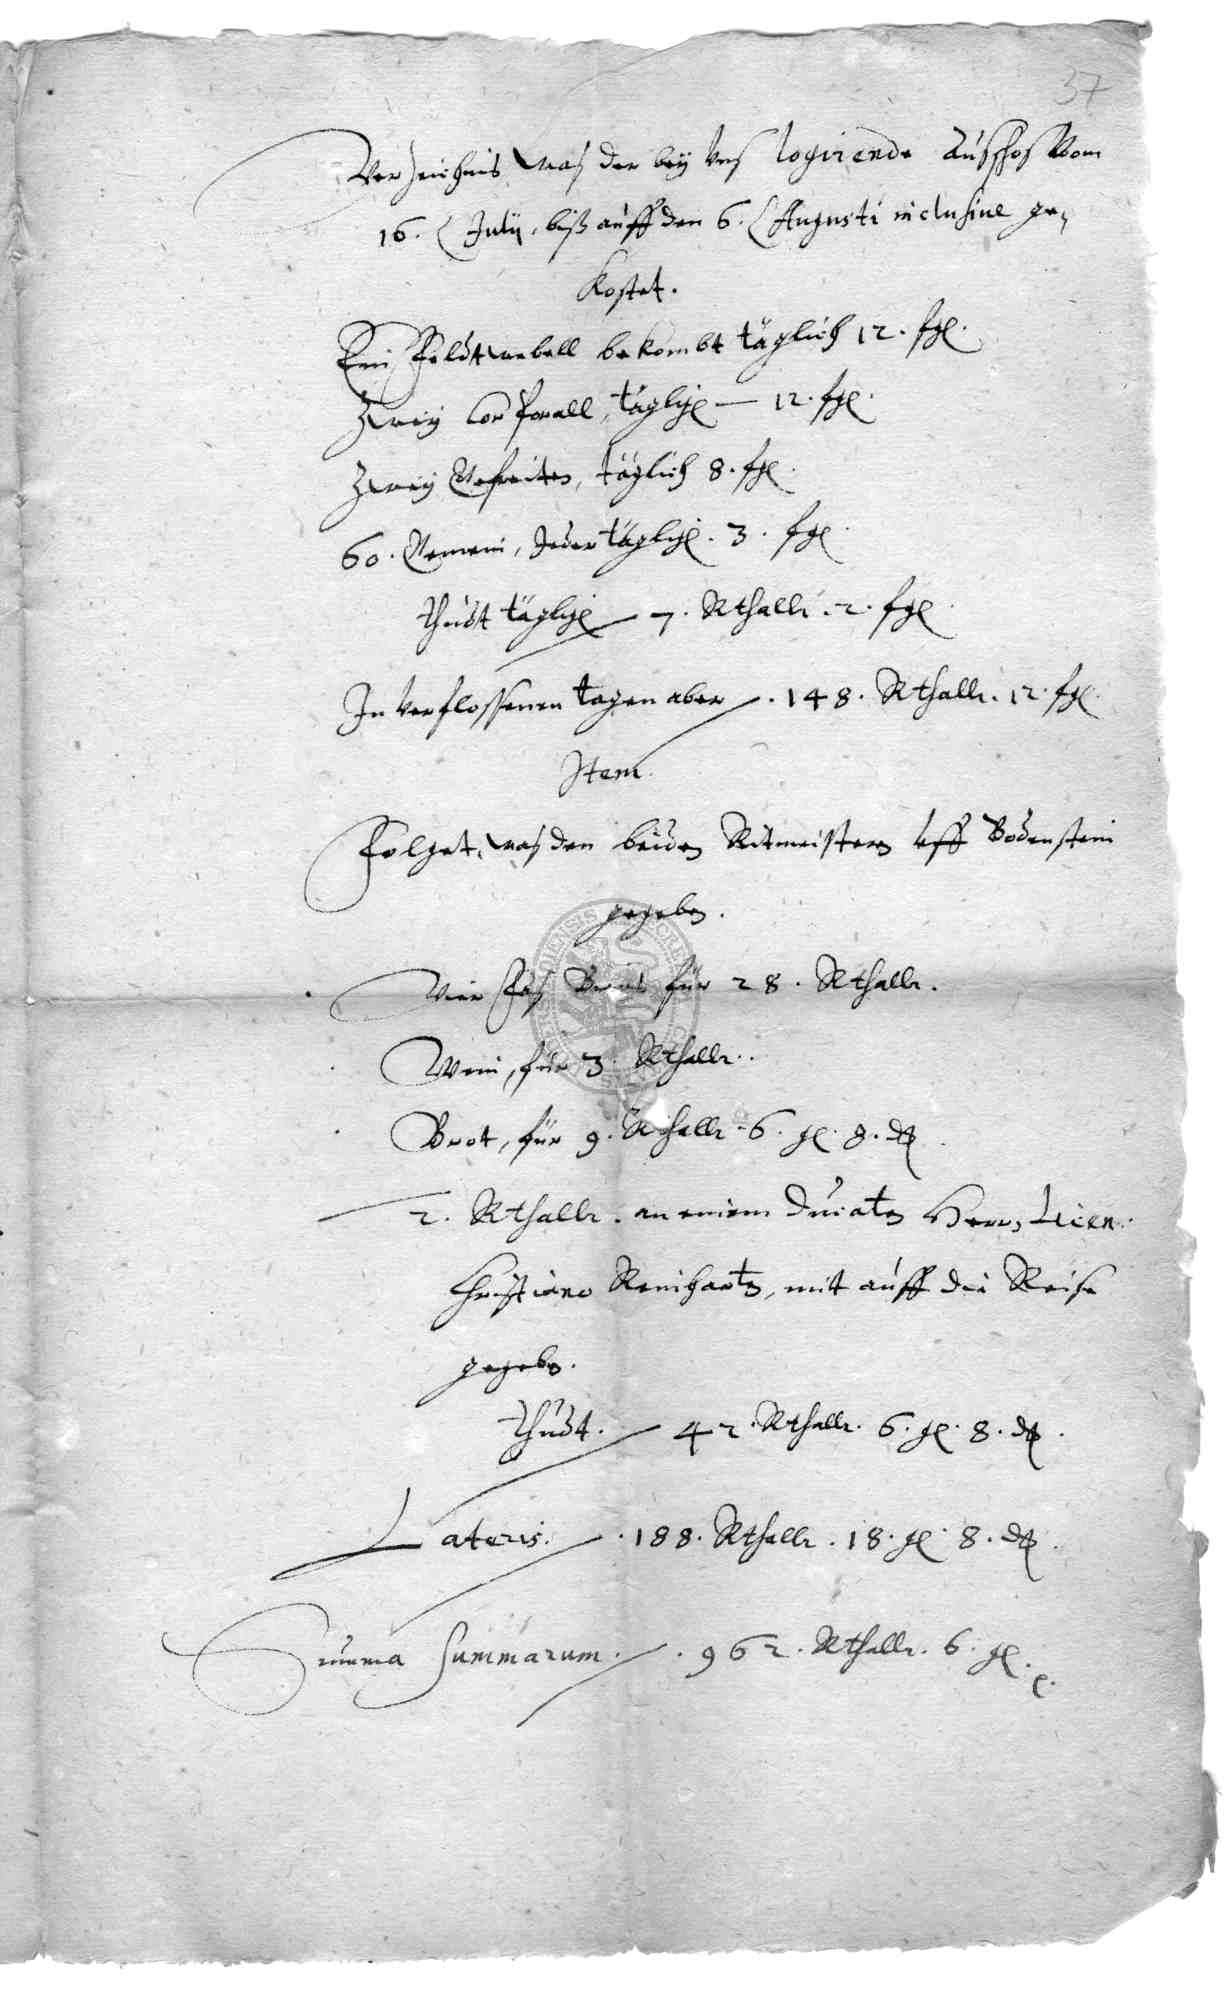 37
Verzeichnis was der bey Vns logirende Ausschos Vom
16. Julij, biß auff den 6. Augusti inclusiue ge,
kostet.
Ein Feldtwebell bekombt täglich 12. sgl.
Zwey Corporall, täglich — 12. sgl.
Zwey Gefreiten, täglich 8. sgl.
60. Gemein, Jeder täglich. 3. sgl.
thudt täglich — 7. Rthallr. 2. sgl.
In Verflossenen tagen aber. 148. Rthallr. 12. sgl.
Item
Folget, was den beiden Ritmeistern vff Bodenstein
gegeben.
Vier Fas für 28. Rthallr.
Wein, für 3. Rthallr.
Brot, für 9. Rthallr. 6. gl. 8. d
2. Rthallr. an einem Ducaten Herrn Licen.
Christiano Reinharten, mit auff die Reise
gegeben.
thudt. — 42. Rthallr. 6. gl. 8. d.
Lateris. 188. Rthallr. 18. gl. 8. d.
Summa Summarum. 962. Rthallr. 6. gl.